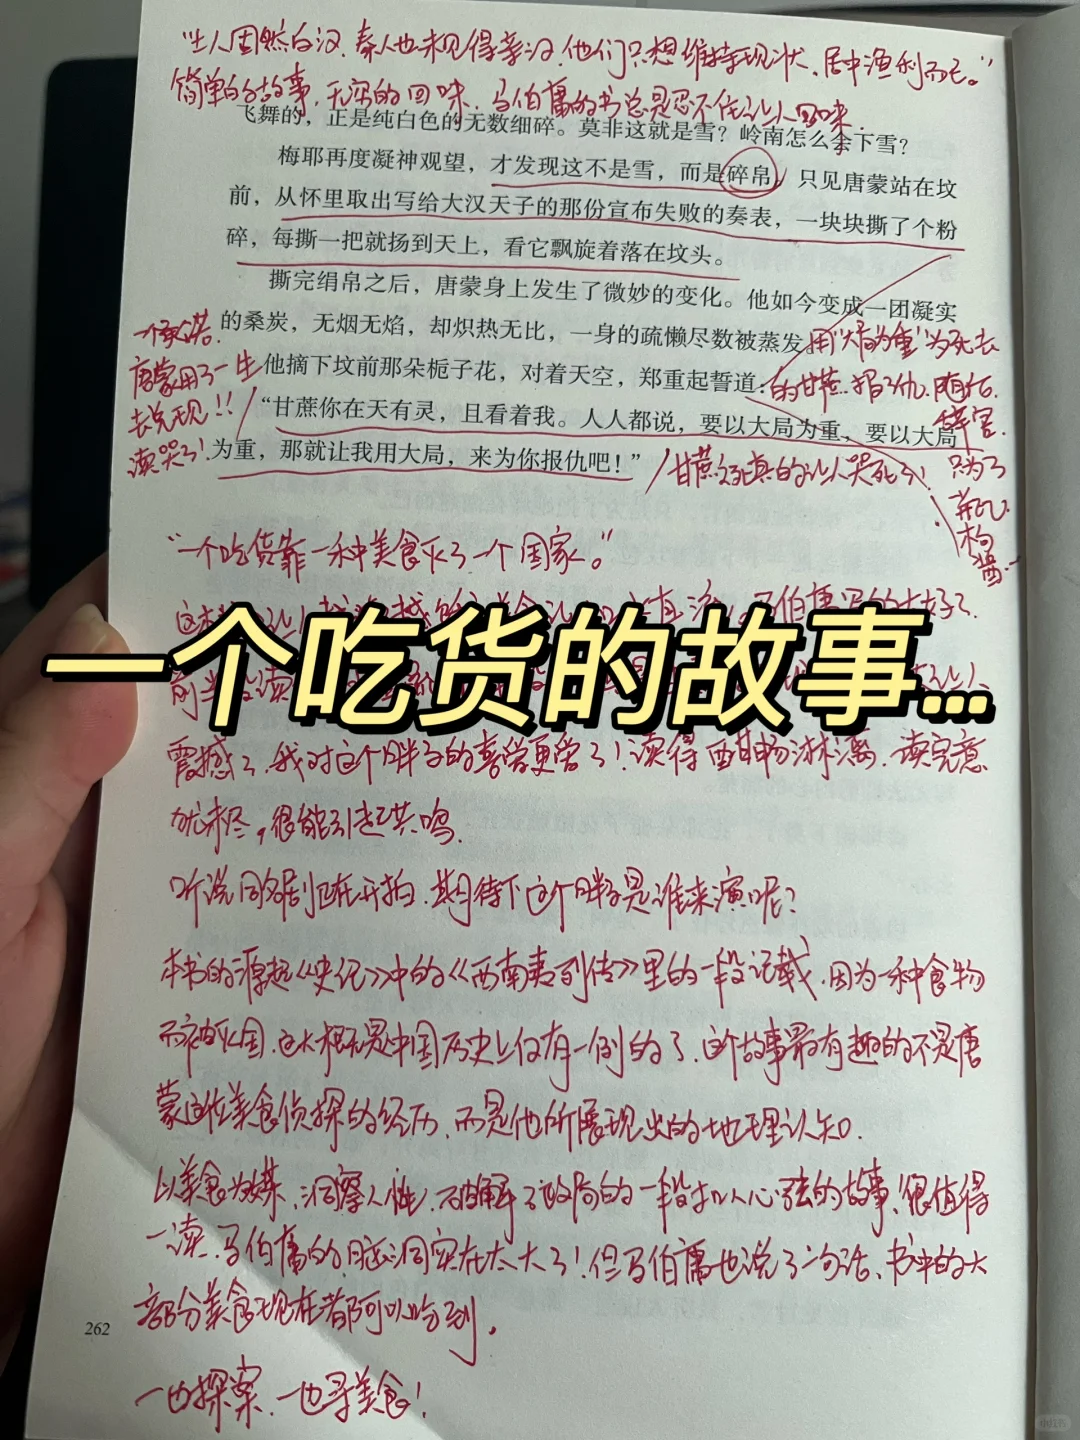 "土人固然白汉，秦人也未见得亲汉，他们只想维持现状，居中渔利而已。"
简单的故事，无穷的回味，马伯庸的书总是忍不住让人回味.
飞舞的，正是纯白色的无数细碎。莫非这就是雪？岭南怎么会下雪？
梅耶再度凝神观望，才发现这不是雪，而是碎帛。只见唐蒙站在坟
前，从怀里取出写给大汉天子的那份宣布失败的奏表，一块块撕了个粉
碎，每撕一把就扬到天上，看它飘旋着落在坟头。
撕完绢帛之后，唐蒙身上发生了微妙的变化。他如今变成一团凝实
的桑炭，无烟无焰，却炽热无比，一身的疏懒尽数被蒸发。
他摘下坟前那朵栀子花，对着天空，郑重起誓道：
"甘蔗你在天有灵，且看着我。人人都说，要以大局为重，要以大局
为重，那就让我用大局，来为你报仇吧！"
一个承诺.
唐蒙用了一生
去兑现!!
读哭了!
为死去
的甘蔗报了仇.随后
辞官.
只为了
枸
酱…
甘蔗之死真的让人哭死了!
"一个吃货靠一种美食灭了一个国家。"
一个吃货的故事...
震撼了.我对这个胖子的喜爱更爱了!读得酣畅淋漓.读完意
犹未尽,很能引起共鸣.
听说同名剧已在开拍.期待下这个胖子是谁来演呢?
本书的源起《史记》中的《西南夷列传》里的一段记载,因为一种食物
而被灭国.这大概是中国历史上仅有一例的了.这个故事最有趣的不是唐
蒙这位美食侦探的经历.而是他所展现出的地理认知.
以美食为媒、洞察人性、破解了政局的一段扣人心弦的故事,很值得
一读.马伯庸的脑洞实在太大了!但马伯庸也说了一句话、书中的大
部分美食现在都可以吃到.
一边探案.一边寻美食!
262